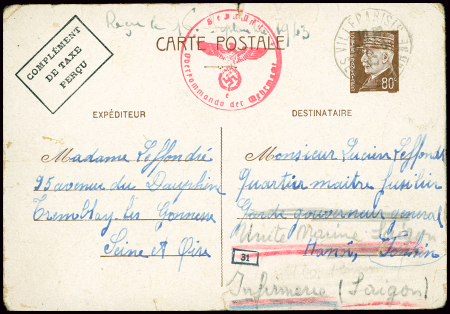 Reçue le septembre 1943
CARTE POSTALE
COMPLÉMENT
DE TAXE
PERÇU
Geprüft
Oberkommando der Wehrmacht
e
VILLEPARISIS
80c
EXPÉDITEUR
Madame Leffondré
95 avenue du Dauphin
Tremblay les Gonesse
Seine et Oise
DESTINATAIRE
Monsieur Lucien Leffondré
Quartier maitre fusilier
Garde gouverneur general
Unite Marine Saigon
Hanoï, Tonkin
31
Infirmerie (Saigon)